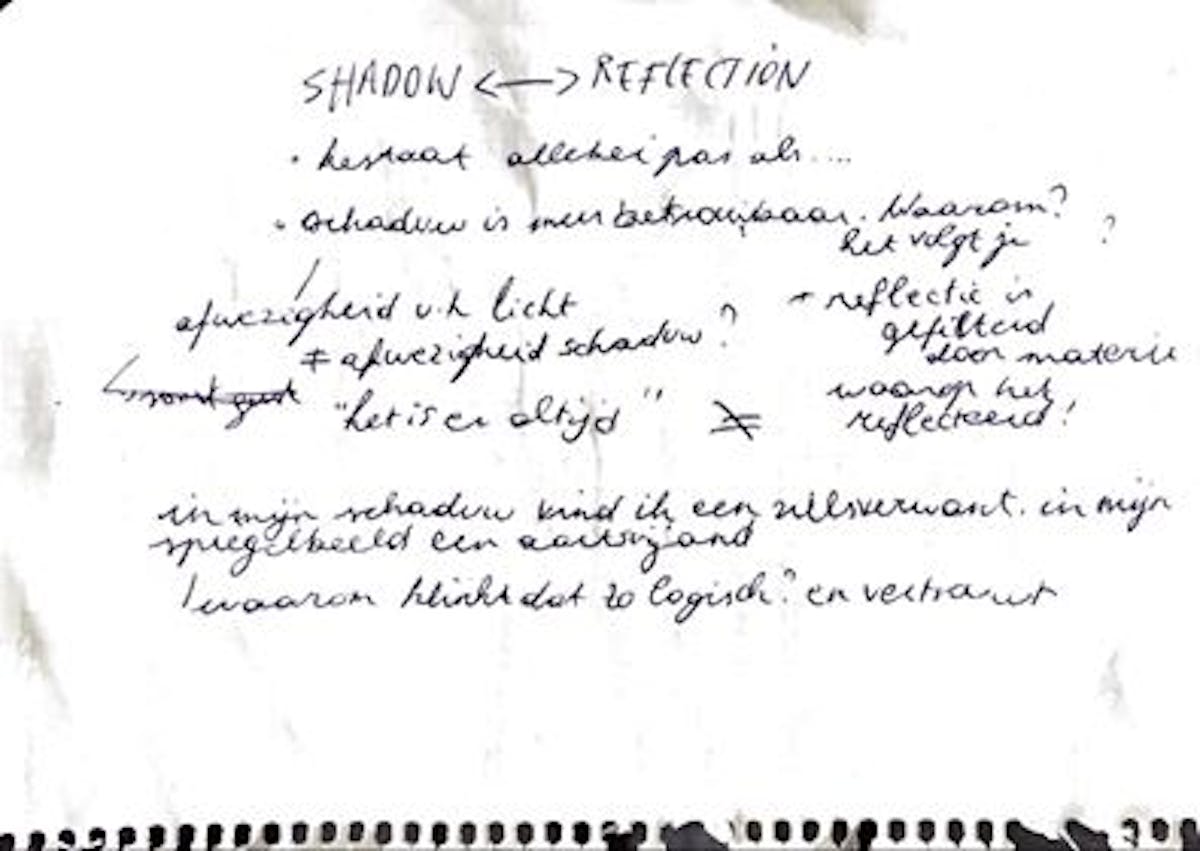 SHADOW <—> REFLECTION
• bestaat allebei pas als ....
• schaduw is meer betrouwbaar. Waarom?
het volgt je ?
afwezigheid v.h. licht
≠ afwezigheid schaduw?
- reflectie is
gefilterd
door materie
waarop het
reflecteerd!
"het is er altijd" ≠
in mijn schaduw vind ik een zielsverwant. in mijn
spiegelbeeld een aartsvijand
waarom klinkt dat zo logisch? en vertrouwt